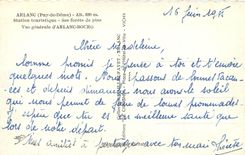 ARLANC (Puy-de-Dôme) - Alt. 600 m.
Station touristique - Ses forêts de pins
Vue générale d'ARLANC-BOURG
16 Juin 1958
Chère Madeleine,
Comme promis je pense à toi et t'envoie
quelques mots. Nous passons de bonnes vacances
et depuis dimanche nous avons le soleil
qui nous permet de faire de longues promenades.
J'espère que tu es en meilleure santé que
lors de notre départ.
amitiés à partager avec ton mari